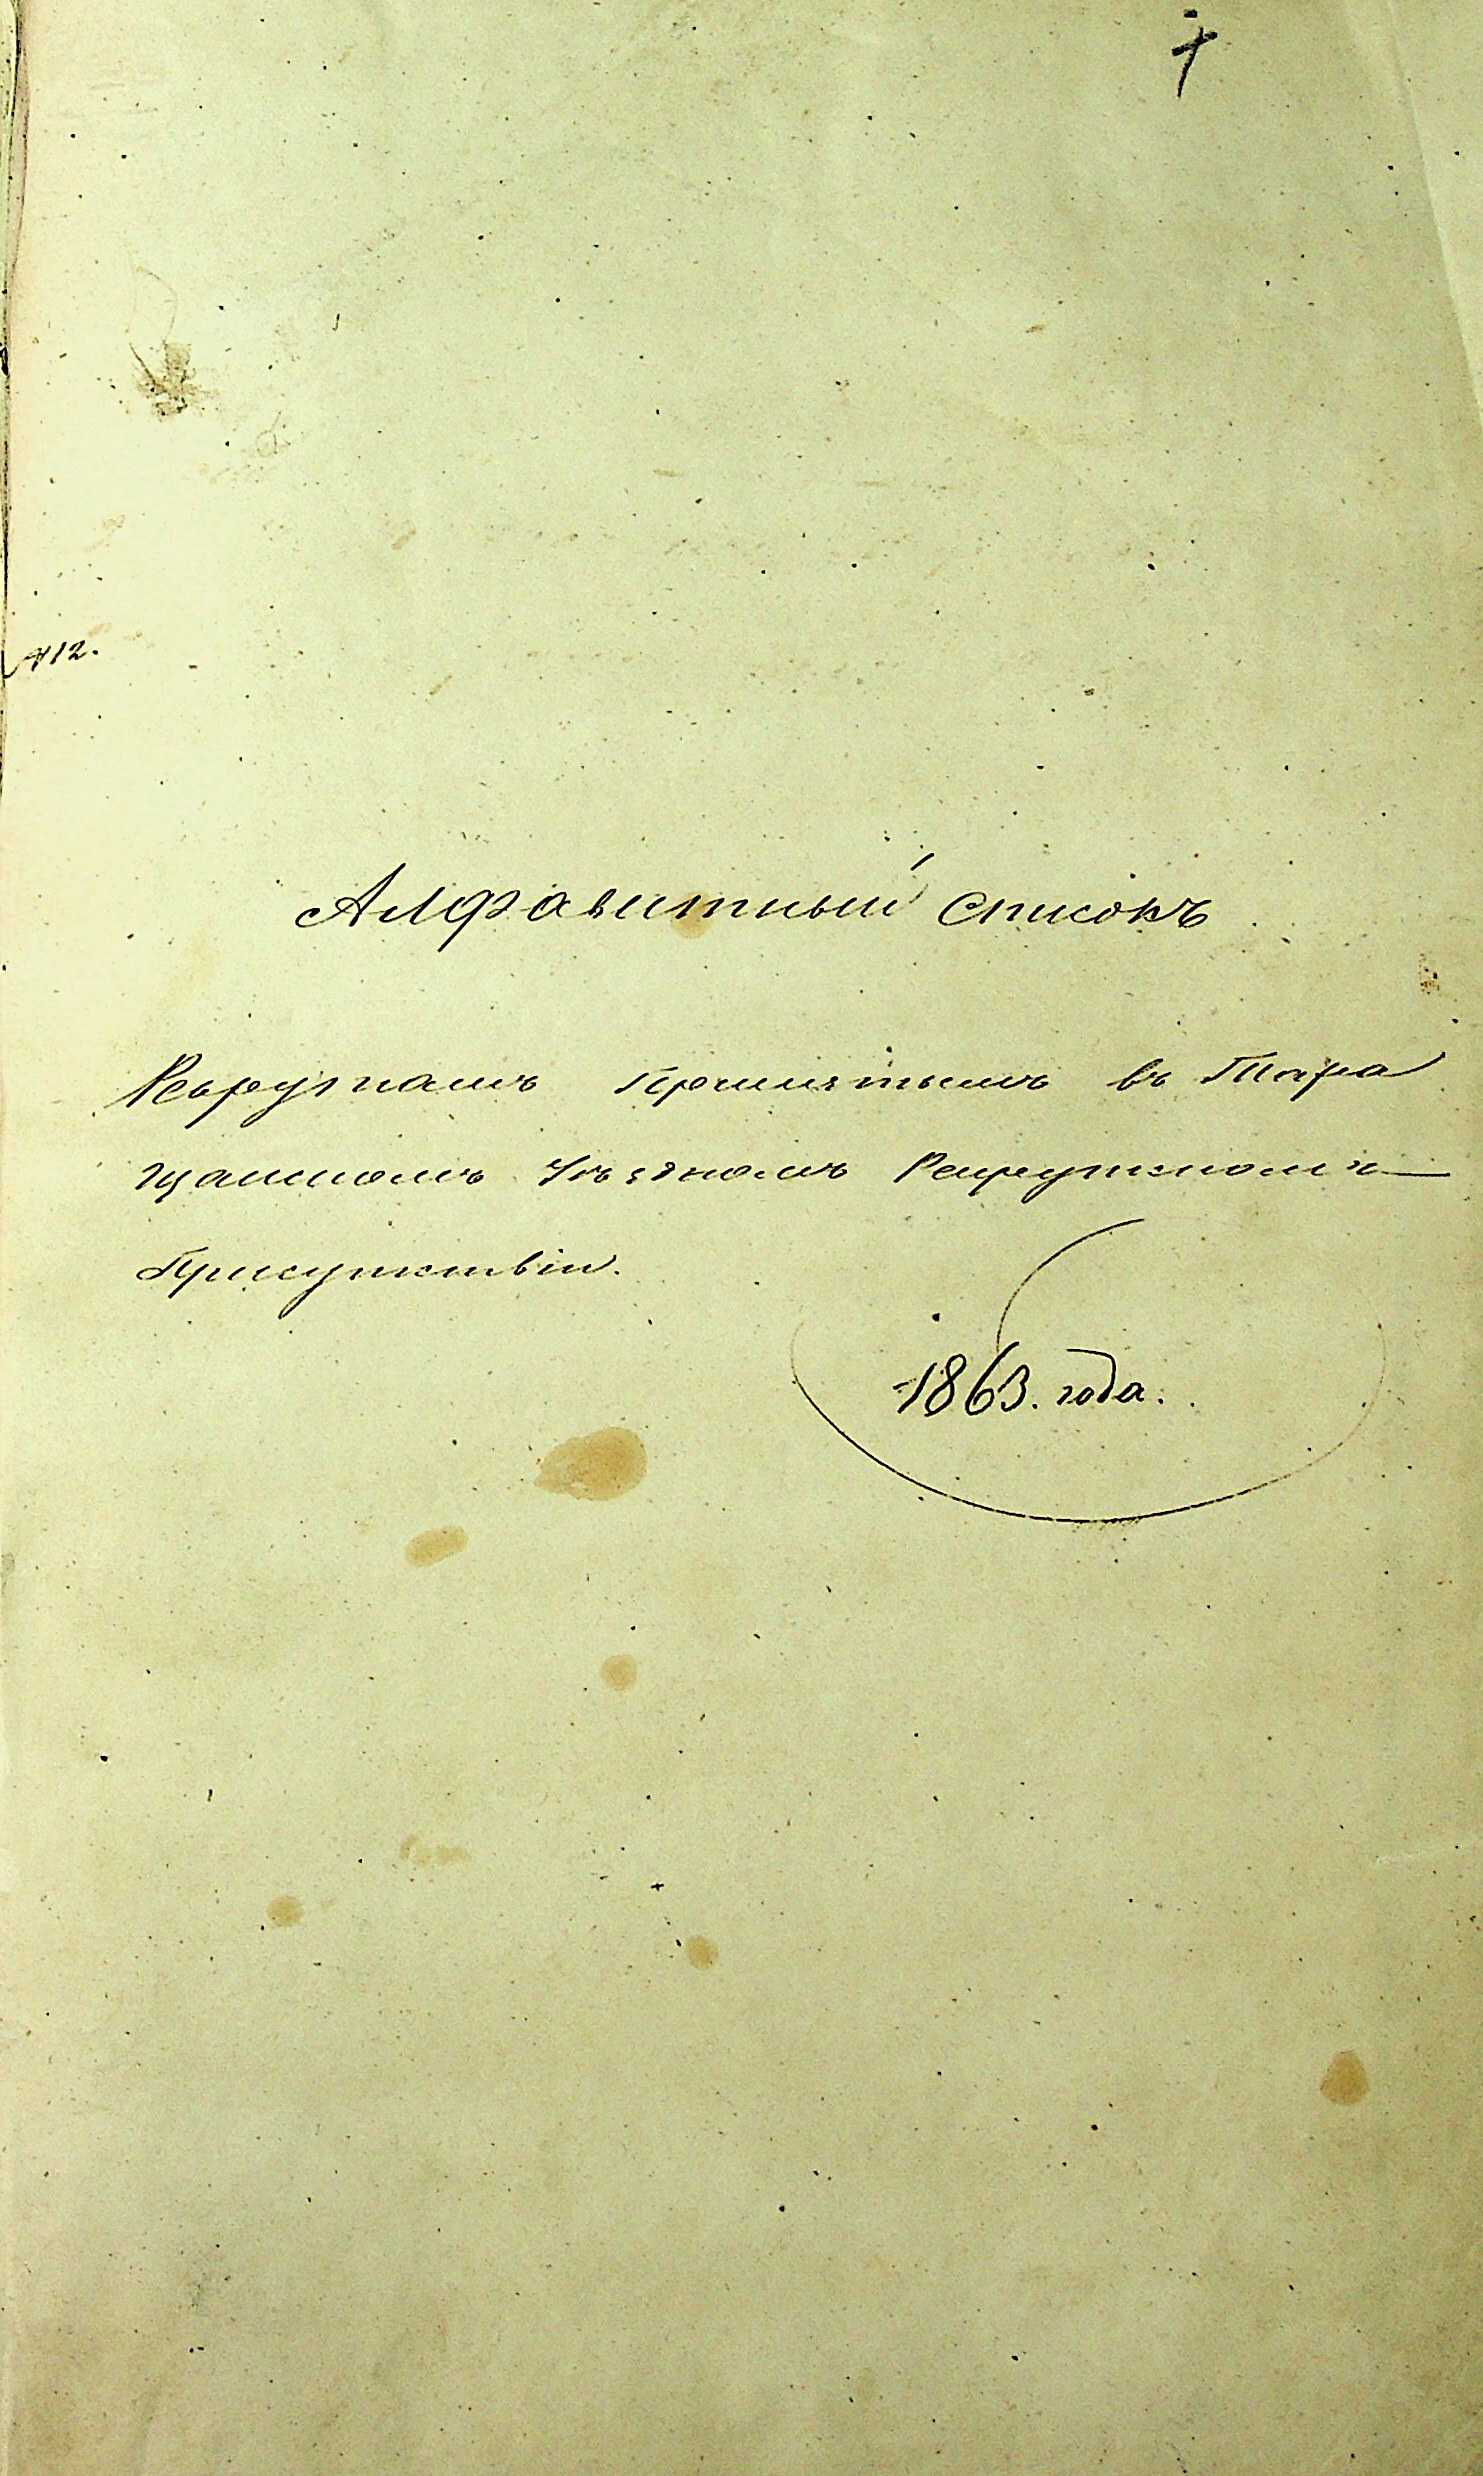 №12.
Алфавитный списокъ
Рекрутамъ принятымъ въ Тара
щанскомъ Уѣздномъ Рекрутскомъ
Присутствіи.
1863. года.